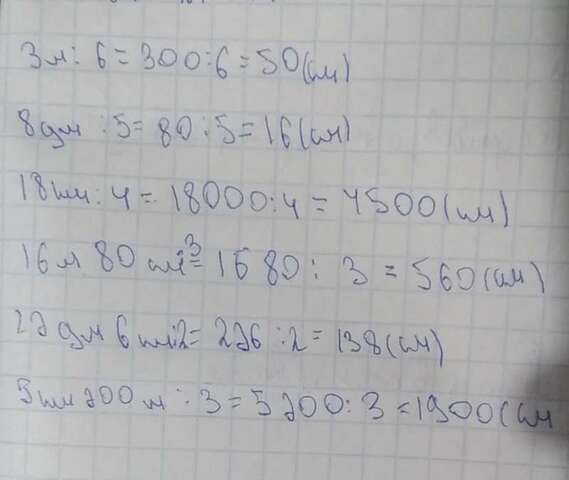 3м : 6 = 300 : 6 = 50 (см)
8дм : 5 = 80 : 5 = 16 (см)
18км : 4 = 18000 : 4 = 4500 (м)
16м 80 см : 3 = 1680 : 3 = 560 (см)
27дм 6 см : 2 = 276 : 2 = 138 (см)
5км 700 м : 3 = 5700 : 3 = 1900 (см